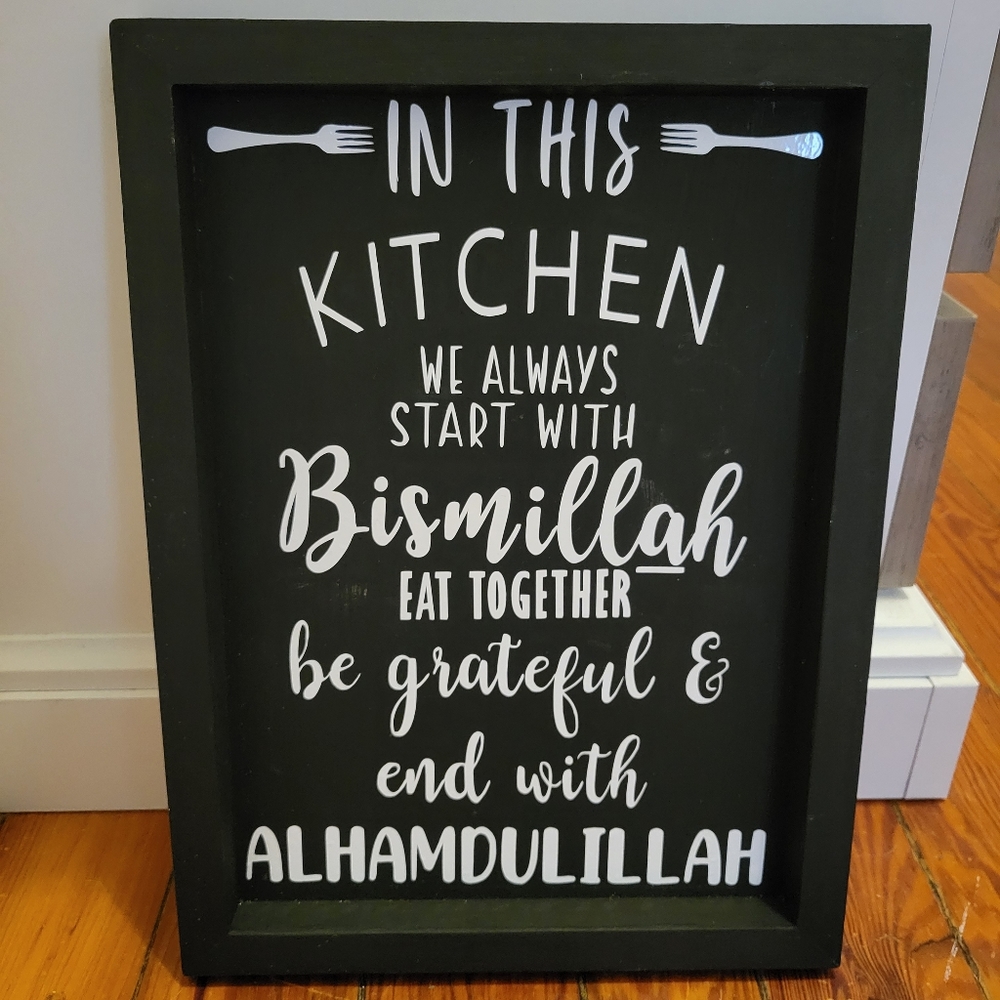 IN THIS
KITCHEN
WE ALWAYS
START WITH
Bismillah
EAT TOGETHER
be grateful &
end with
ALHAMDULILLAH